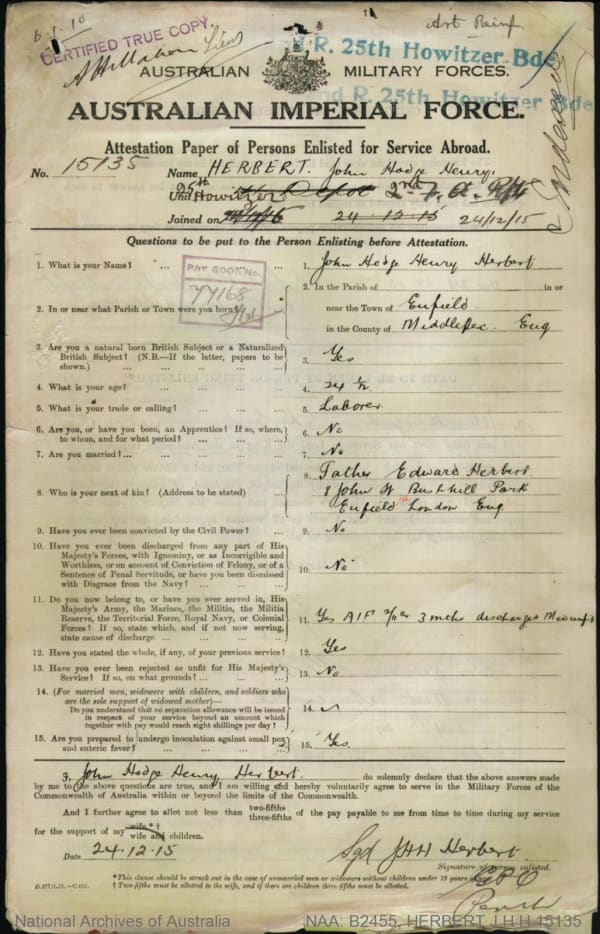 6.1.16
Art Reinf.
CERTIFIED TRUE COPY.
Lieut
R. 25th Howitzer Bde
AUSTRALIAN MILITARY FORCES.
R. 25th Howitzer Bde
AUSTRALIAN IMPERIAL FORCE.
Attestation Paper of Persons Enlisted for Service Abroad.
No. 15135 Name HERBERT. John Hodge Henry.
25th
Unit Howitzers Depot
Joined on 24-12-15 24/12/15
Questions to be put to the Person Enlisting before Attestation.
1. What is your Name? ... ... 1. John Hodge Henry Herbert
PAY BOOK No.
77168
2. In or near what Parish or Town were you born? 2. In the Parish of in or
near the Town of Enfield
in the County of Middlesex. Eng
3. Are you a natural born British Subject or a Naturalized
British Subject? (N.B.—If the latter, papers to be
shown.) ... ... 3. Yes
4. What is your age? ... ... 4. 24 ½
5. What is your trade or calling? ... ... 5. Laborer
6. Are you, or have you been, an Apprentice? If so, where,
to whom, and for what period? ... ... 6. No
7. Are you married? ... ... 7. No
8. Who is your next of kin? (Address to be stated) ... 8. Father Edward Herbert
8 John St Bushhill Park
Enfield London Eng
9. Have you ever been convicted by the Civil Power? ... 9. No
10. Have you ever been discharged from any part of His
Majesty's Forces, with Ignominy, or as Incorrigible and
Worthless, or on account of Conviction of Felony, or of a
Sentence of Penal Servitude, or have you been dismissed
with Disgrace from the Navy? ... ... 10. No
11. Do you now belong to, or have you ever served in, His
Majesty's Army, the Marines, the Militia, the Militia
Reserve, the Territorial Force, Royal Navy, or Colonial
Forces? If so, state which, and if not now serving,
state cause of discharge ... ... 11. Yes AIF 3 mths discharged
12. Have you stated the whole, if any, of your previous service? 12. Yes
13. Have you ever been rejected as unfit for His Majesty's
Service? If so, on what grounds? ... ... 13. No
14. (For married men, widowers with children, and soldiers who
are the sole support of widowed mother)—
Do you understand that no separation allowance will be issued
in respect of your service beyond an amount which
together with pay would reach eight shillings per day? 14.
15. Are you prepared to undergo inoculation against small pox
and enteric fever? ... ... 15. Yes.
I, John Hodge Henry Herbert. do solemnly declare that the above answers made
by me to the above questions are true, and I am willing and hereby voluntarily agree to serve in the Military Forces of the
Commonwealth of Australia within or beyond the limits of the Commonwealth.
And I further agree to allot not less than two-fifths three-fifths of the pay payable to me from time to time during my service
for the support of my wife*† wife and children.
Date 24.12.15 Sgd JHH Herbert.
Signature of person enlisted.
*This clause should be struck out in the case of unmarried men or widowers without children under 18 years of age.
D.277/1.15.—C. † Two-fifths must be allotted to the wife, and if there are children three-fifths must be allotted.
Perth
National Archives of Australia NAA: B2455, HERBERT J H H 15135